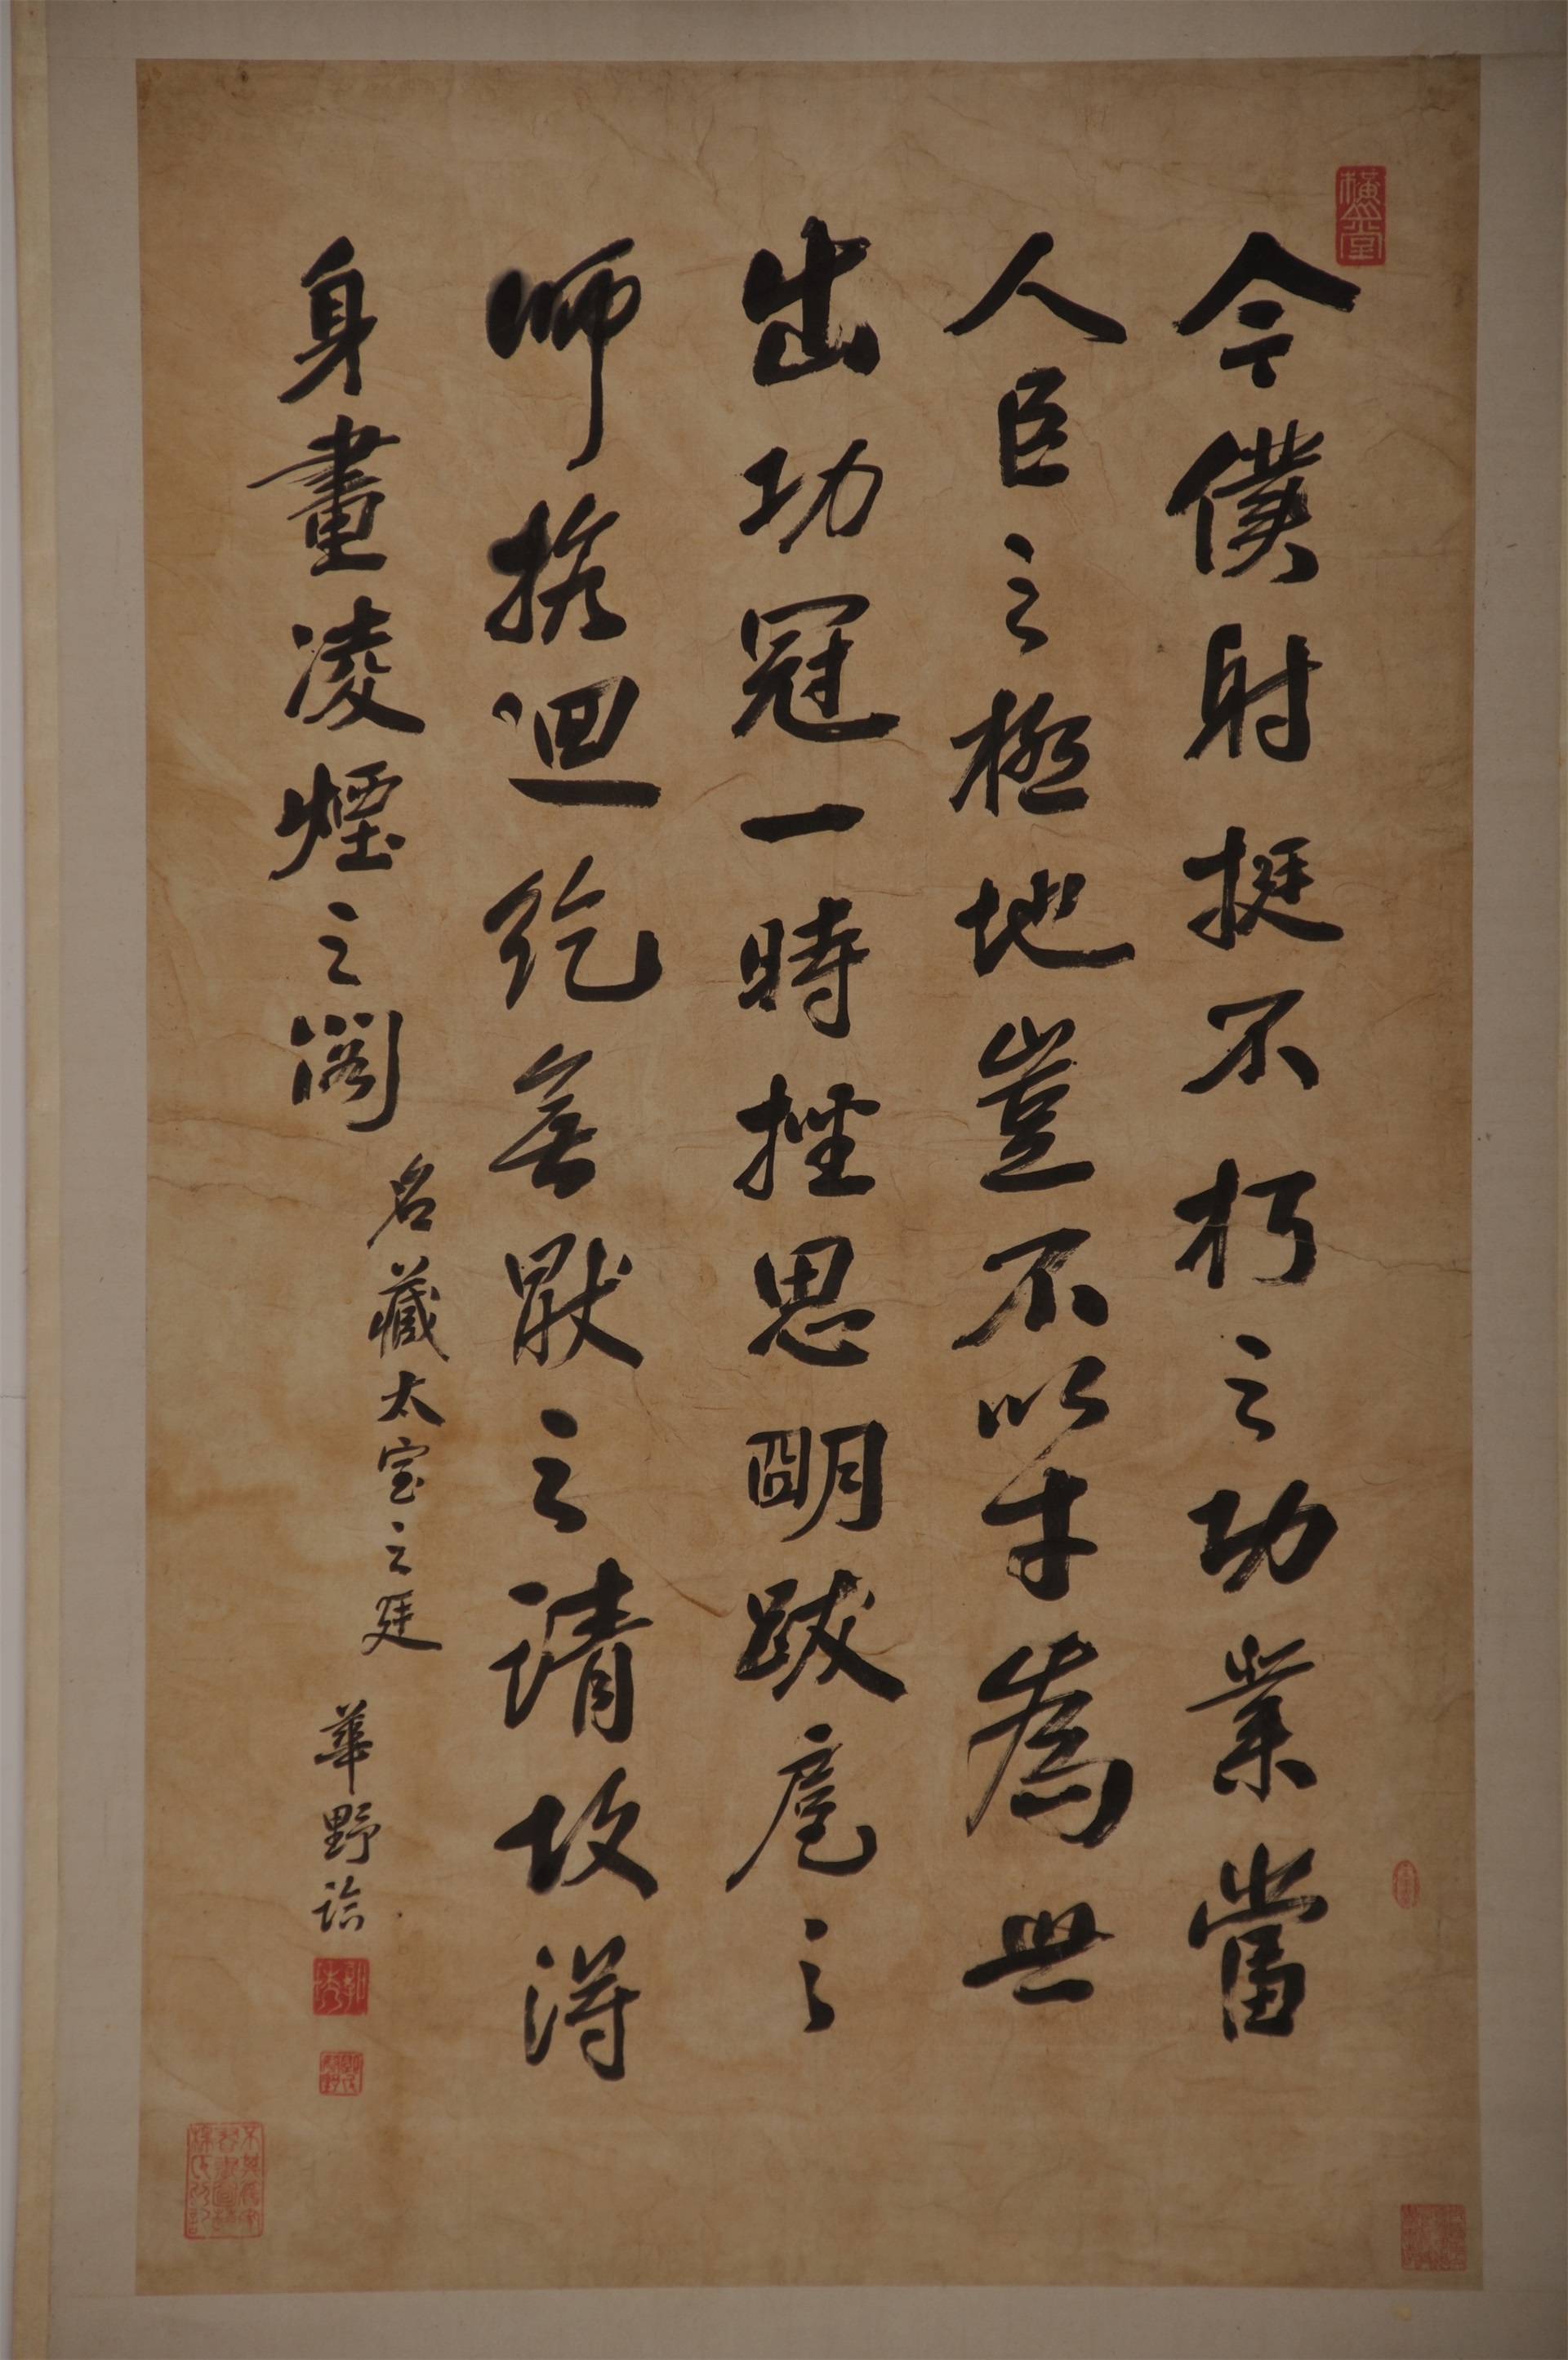 今僕射挺不朽之功業當
人臣之極地豈不以才為世
出功冠一時挫思明跋扈之
師抗迴紇無厭之請故得
身畫凌煙之閣
名藏太室之廷
華野詒